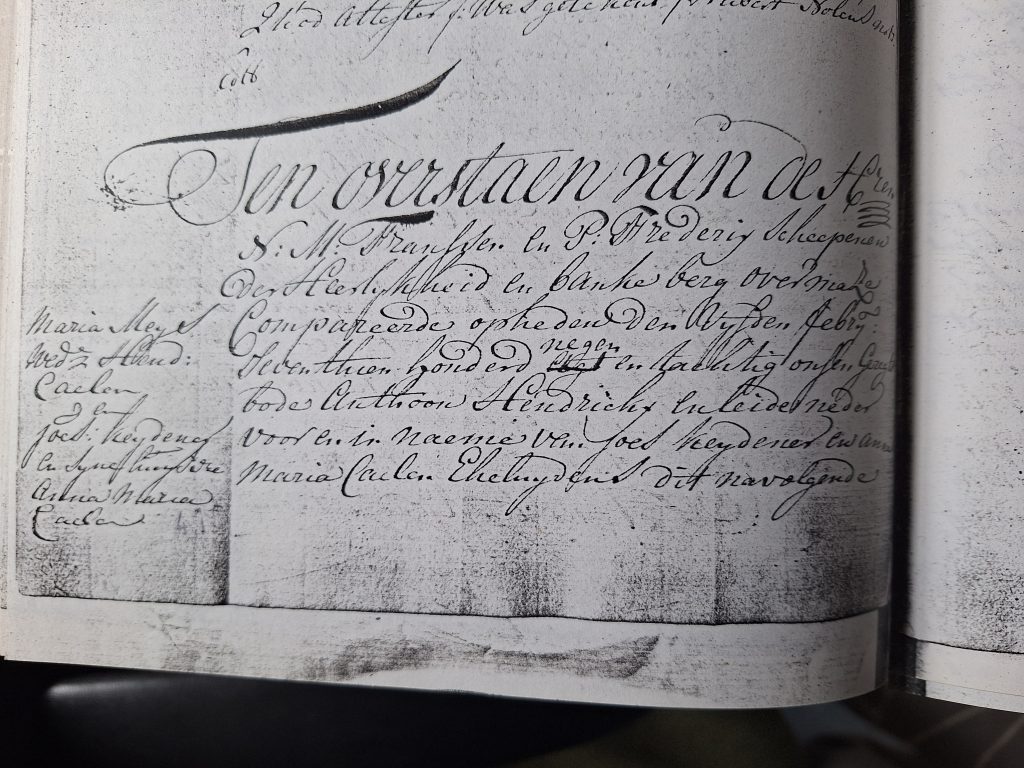 Quod Attestor /: Was getekent :/ Hubert Nolens
Coll
Ten overstaen van de Hren
N: M: Franssen en P: Frederix Scheepenen
der Heerlykheid en banke berg over maeze
Compareerde opheden den Vyfden febry:
Seventhien honderd negen en tachtig onsen Gerigts
bode Anthoon Hendrickx en leide neder
voor en in naeme van joes keydener en anna
Maria Caelen Eheluydens dit navolgende
Maria Meys
wed: Hend:
Caelen
joes: keydener
en syne huysvre
Anna Maria
Caelen